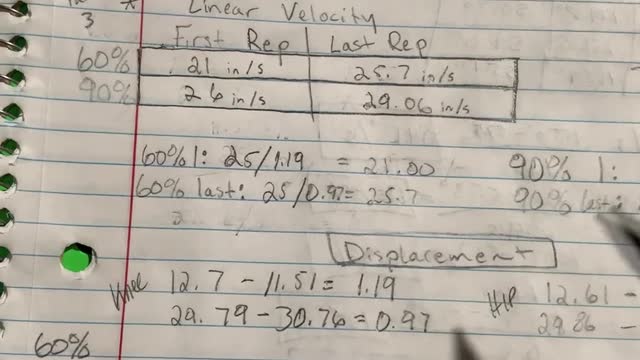 3
Linear Velocity
First Rep Last Rep
60% 21 in/s 25.7 in/s
90% 26 in/s 29.06 in/s
60% 1: 25/1.19 = 21.00 90% 1:
60% last: 25/0.97= 25.7 90% last:
Displacement
12.7 - 11.51= 1.19 HIP 12.61 -
29.79-30.76=0.97 29.86 -
60%